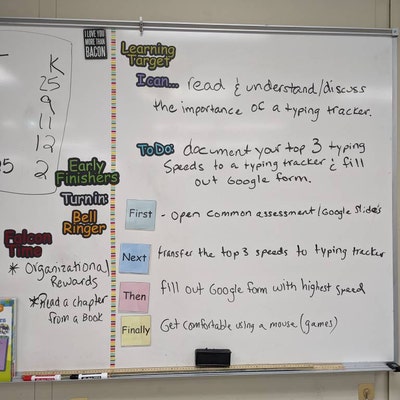 K
25
9
11
12
2
Early
Finishers
Turn in:
Bell
Ringer
Falcon
Time
* Organizational
Rewards
* Read a chapter
from a Book
I LOVE YOU
MORE THAN
BACON
Learning
Target
I can... read & understand/discuss
the importance of a typing tracker.
To Do: document your top 3 typing
Speeds to a typing tracker & fill
out Google form.
First - Open Common assessment/Google Slides
Next transfer the top 3 speeds to typing tracker
Then fill out Google form with highest speed
Finally Get comfortable using a mouse (games)